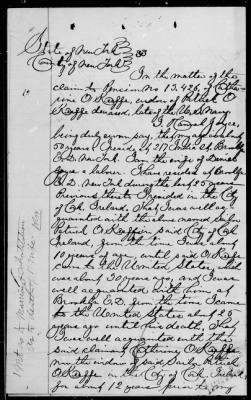 State of New York
County of New York
In the matter of the
claim to Pension No 13,426, of Cathe-
rine O'Keeffe, widow of Patrick O
Keeffe deceased, late of the U.S. Navy
Joyce,
being duly sworn, say, that my age is about
50 years. I reside at 217 Brooklyn
E.D. New York. I am the wife of Daniel
Joyce a laborer. I have resided in Brooklyn
E.D. New York during the last 25 years.
Previous thereto I resided in the City
of Cork, Ireland, that I was well ac-
quainted with the above named sailor
Patrick O'Keeffe in said City of Cork
Ireland, from the time I was about
10 years of age until said O'Keeffe
came to the United States, which
was about 30 years ago, and I was
well acquainted with him at
Brooklyn E.D. from the time I came
to the United States about 25
years ago until his death. That
I was well acquainted with the
said claimant Catherine O'Keeffe
now the widow of said Patrick
O'Keeffe in the City of Cork, Ireland
for about 12 years prior to my
Witness to marriage, cohabitation
and death